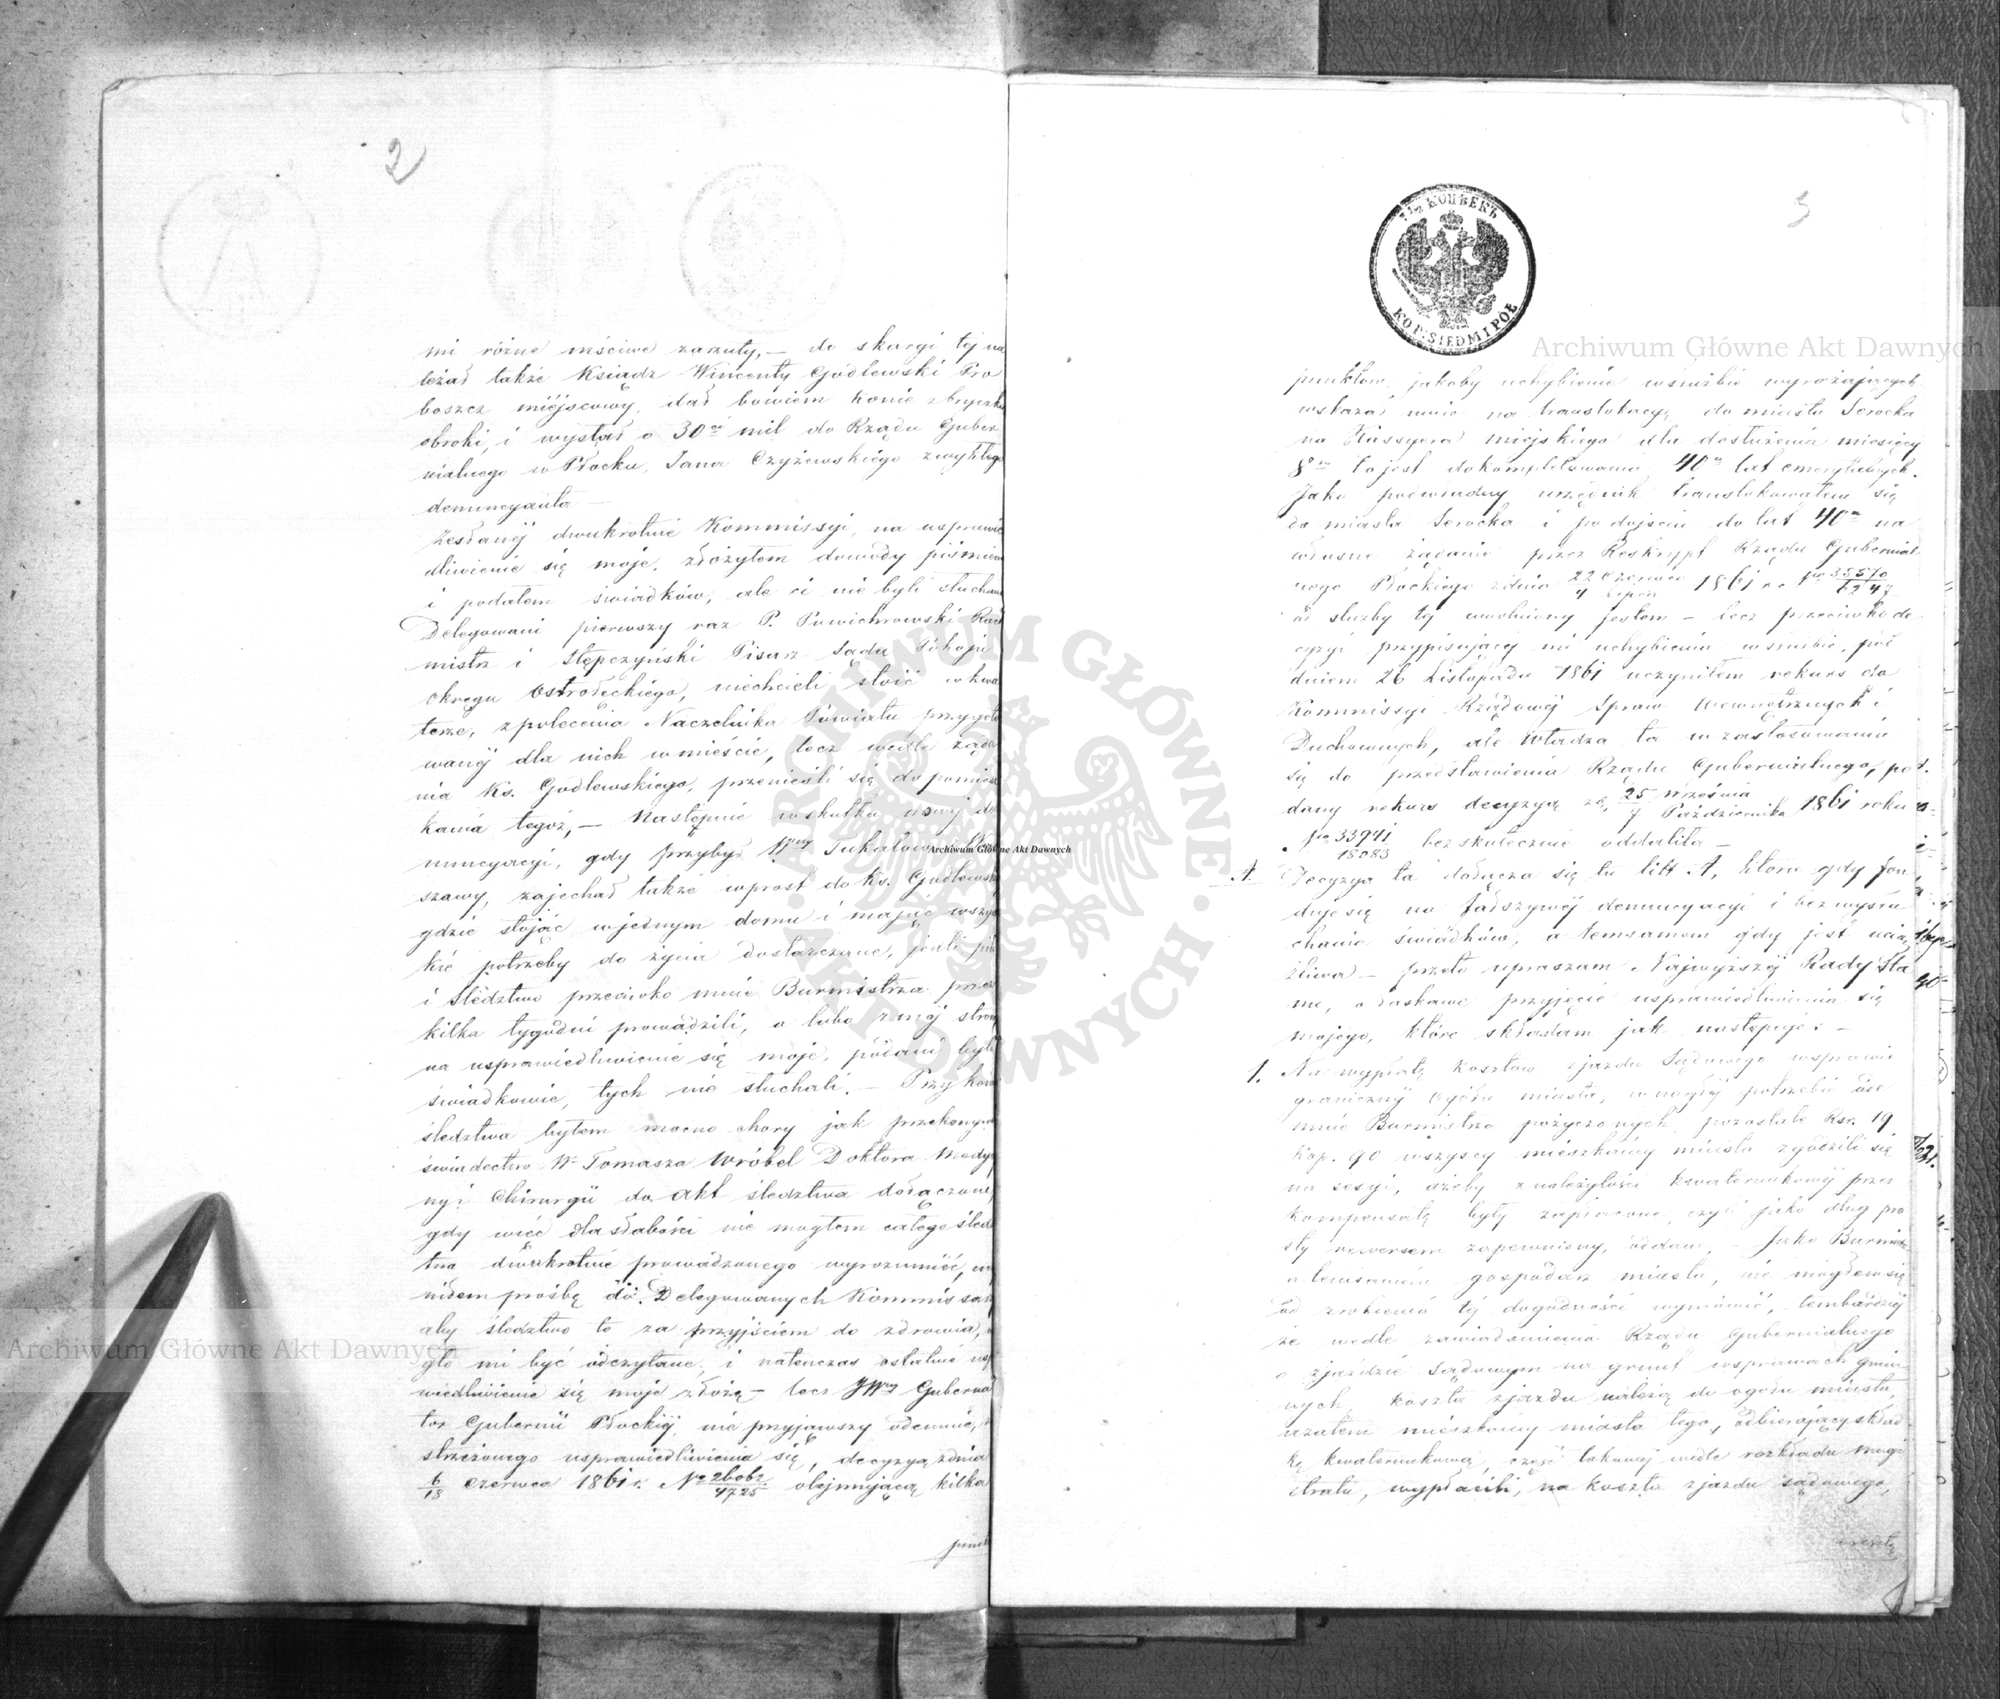 2
mi różne mściwe zarzuty, — do skargi tej na
leżał także Ksiądz Wincenty Godlewski Pro
boszcz miejscowy, dał bowiem konie z bryczką
obroki, i wysłał o 30ci mil do Rządu Guber
nialnego w Płocku, Jana Czyżewskiego zwykłego
denuncyanta —
Zesłanéj dwukrotnie Kommissyi, na usprawie
dliwienie się moje, złożyłem dowody piśmien
i podałem świadków, ale ci nie byli słuchani
Delegowani pierwszy raz P. Rach
mistrz i Stępczyński Pisarz Sądu Pokoju
Okręgu Ostrołęckiego, niechcieli stoić w kwa
terze, z polecenia Naczelnika Powiatu przygoto
wanéj dla nich w mieście, lecz wedle żąda
nia Ks. Godlewskiego, przenieśli się do pomiesz
kania tegoż, — Następnie w skutku nowéj de
nuncyacyi, gdy przybył Wny
szawy, zajechał także wprost do Ks. Godlewski
gdzie stojąc w jednym domu i mając wszyst
kie potrzeby do życia dostarczane, jedli pili
i śledztwo przeciwko mnie Burmistrza przez
kilka tygodni prowadzili, a lubo z méj strony
na usprawiedliwienie się moje, podani byli
świadkowie, tych nie słuchali. — Przy końcu
śledztwa byłem mocno chory jak przekonywa
świadectwo W. Tomasza Wróbel Doktora Medycy
ny i Chirurgii do akt śledztwa dołączone,
gdy więc dla słabości nie mogłem całego śledz
twa dwukrotnie prowadzonego wyrozumieć,
niosłem prośbę do Delegowanych Kommissarzy
aby śledztwo to za przyjściem do zdrowia,
gło mi być odczytane, i natenczas ostatnie usp
wiedliwienie się moje złożę — lecz JWny Guberna
tor Gubernii Płockiéj, nie przyjąwszy odemnie,
strzeżonego usprawiedliwienia się, decyzyą z dnia
6/18 Czerwca 1861 r. No 26062/4725 obejmującą kilka
punk
7½ КОПѢЕКЪ
KOP: SIEDM I PÓŁ
3
punktów, jakoby uchybienie w służbie wyrażających
wskazał mnie na translokacyą do miasta Serocka
na Kassyera miejskiego dla dosłużenia miesięcy
8 to jest dokompletowania 40u lat emerytalnych.
Jako podwładny urzędnik translokowałem się
do miasta Serocka i po dojściu do lat 40u na
własne żądanie przez Reskrypt Rządu Gubernial
nego Płockiego z dnia 22 Czerwca/4 Lipca 1861 ro No 35570/6247
od służby téj uwolniony jestem — lecz przeciwko de
cyzyi przypisującéj mi uchybienia w służbie, pod
dniem 26 Listopada 1861 uczyniłem rekurs do
Kommissyi Rządowéj Spraw Wewnętrznych i
Duchownych, ale Władza ta w zastosowaniu
się do przedstawienia Rządu Gubernialnego, po
dany rekurs decyzyą z d. 25 Września/7 Października 1861 roku
No 33941/18083 bezskutecznie oddaliła —
A. Decyzya ta dołącza się tu litt A, która gdy fun
duje się na fałszywéj denuncyacyi i bez wysłu
chania świadków, a temsamem gdy jest ucią
żliwa — przeto upraszam Najwyższéj Rady Sta
nu, o łaskawe przyjęcie usprawiedliwienia się
mojego, które składam jak następuje: —
1. Na wypłatę kosztów zjazdu Sądowego w sprawie
granicznéj ogółu miasta, w nagłéj potrzebie ode
mnie Burmistrza pożyczonych, pozostałe Rsr. 19
kop. 90 wszyscy mieszkańcy miasta zgodzili się
na sesyi, ażeby z należytości kwaterunkowéj przez
kompensatę były zapłacone, czyli jako dług pro
sty rewersem zapewniony, oddane, — Jako Burmistrz
a temsamem gospodarz miasta, nie mogłem się
od zrobienia téj dogodności wymówić, tembardziéj
że wedle zawiadomienia Rządu Gubernialnego
o zjeździe Sądowym na grunt w sprawach gmin
nych, koszta zjazdu należą do ogółu miasta,
zatem mieszkańcy miasta tego, odbierający skład
kę kwaterunkową, część takowéj wedle rozkładu magi
stratu, wypłacili, na koszta zjazdu sądowego,
resztę
Archiwum Główne Akt Dawnych
Archiwum Główne Akt Dawnych
Archiwum Główne Akt Dawnych
ARCHIWUM GŁÓWNE AKT DAWNYCH